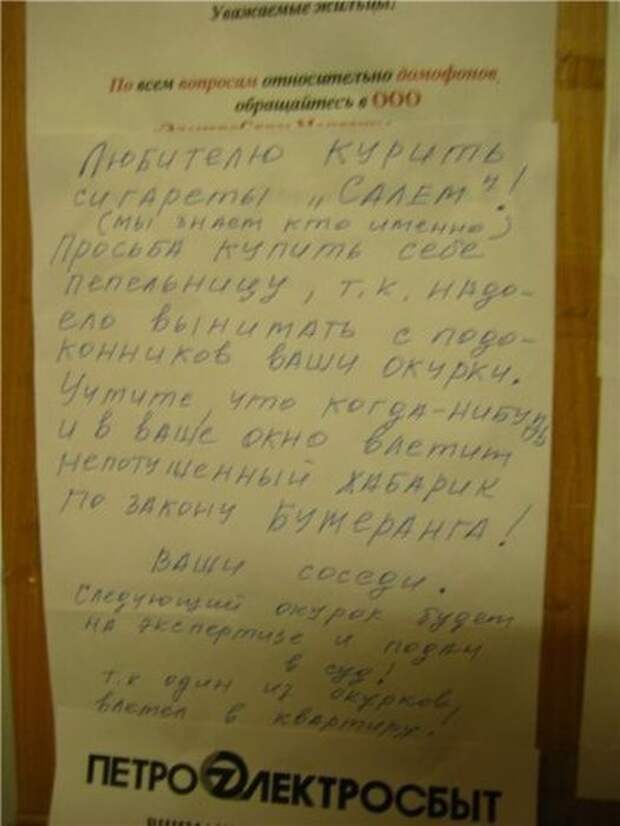 Уважаемые жильцы!
По всем вопросам относительно домофонов
обращайтесь в ООО
Любителю курить
сигареты „Салем"!
(мы знаем кто именно)
Просьба купить себе
пепельницу, т.к. надо-
ело вынимать с подо-
конников ваши окурки.
Учтите, что когда-нибудь
и в ваше окно влетит
непотушенный хабарик
по закону бумеранга!
Ваши соседи.
Следующий окурок будет
на экспертизе и подан
в суд!
т.к один из окурков,
влетел в квартиру!
ПЕТРОЭЛЕКТРОСБЫТ